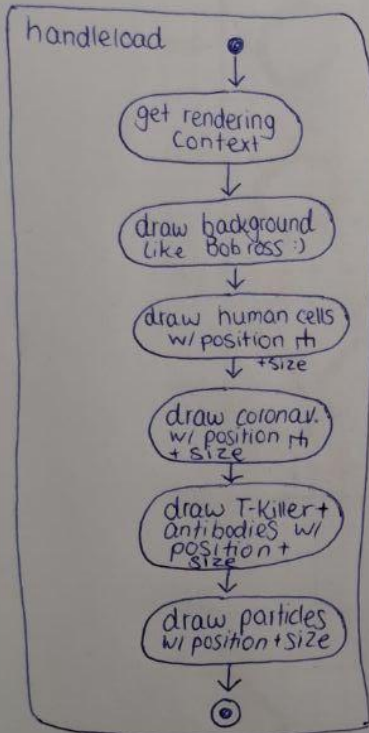 handleload
get rendering
Context
draw background
like Bobross :)
draw human cells
w/ position
+size
draw coronav.
w/ position
+ size
draw T-Killer+
antibodies w/
position +
size
draw particles
w/ position + size